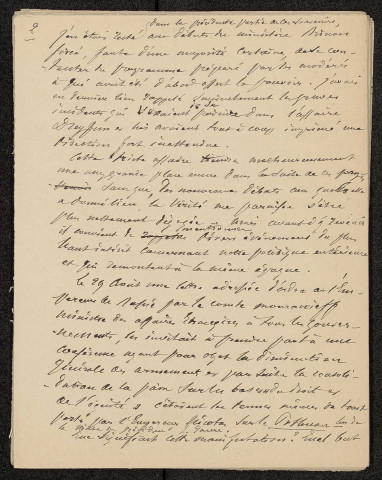 2
Dans la précédente partie de ces Souvenirs,
j'en étais resté au début du ministère Brisson
forcé, faute d'une majorité certaine, de se con-
tenter du programme préparé par des modérés
à qui avait été d'abord offert le pouvoir. J'avais
en dernier lieu rappelé sommairement les graves
incidents qui s'étaient produits dans l'affaire
Dreyfus et lui avaient tout à coup imprimé une
direction fort inattendue.
Cette triste affaire tiendra malheureusement
une assez grande place encore dans la suite de ces pages
sans que les nouveaux débats auxquels
elle a donné lieu la vérité me paraisse s'être
plus nettement dégagée. Mais avant d'y revenir
il convient de mentionner divers événements du plus
haut intérêt concernant notre politique extérieure
et qui remontent à la même époque.
Le 29 Août une lettre adressée d'ordre de l'Em-
pereur de Russie par le comte Mouravieff
Ministre des affaires étrangères à tous les gouver-
nements, les invitait à prendre part à une
conférence ayant pour objet la diminution
générale des armements et par suite la consoli-
dation de la paix sur les bases du droit et
de l'équité. C'étaient les termes mêmes du toast
porté par l'Empereur Nicolas sur le Pothuau lors de
la visite du Président Faure.
Que signifiait cette manifestation? Quel but